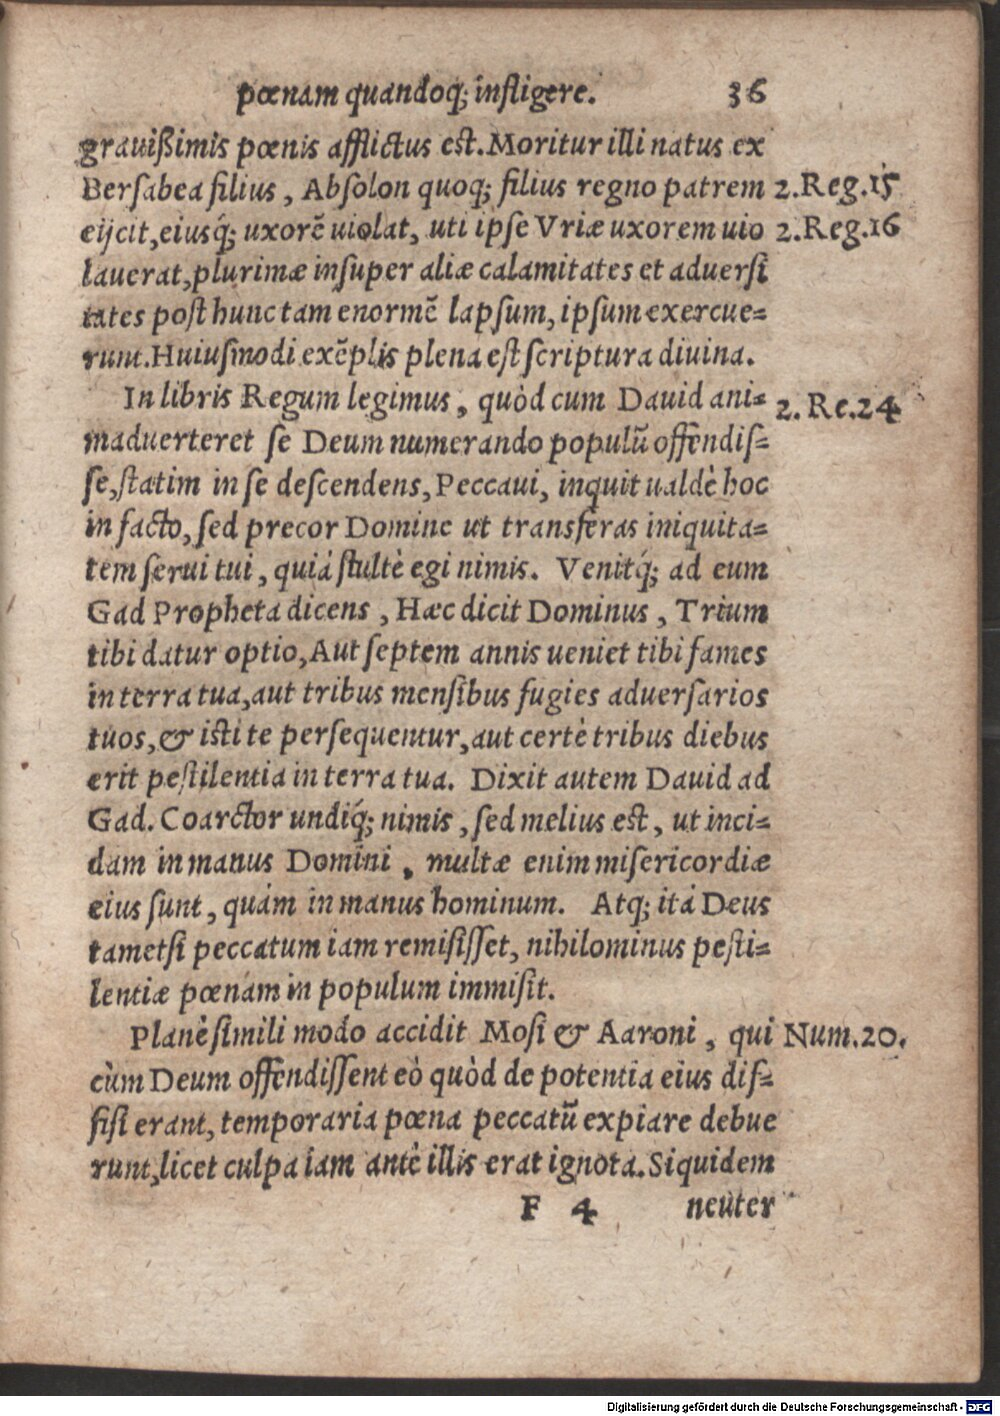 pœnam quandoq; infligere. 36
grauißimis pœnis afflictus est. Moritur illi natus ex
Bersabea filius, Absolon quoq; filius regno patrem 2. Reg. 15
eijcit, eiusq́; uxorẽ uiolat, uti ipse Vriæ uxorem uio 2. Reg. 16
lauerat, plurimæ insuper aliæ calamitates et aduersi
tates post hunc tam enormẽ lapsum, ipsum exercue=
runt. Huiusmodi exẽplis plena est scriptura diuina.
In libris Regum legimus, quòd cum Dauid ani= 2. Re. 24
maduerteret se Deum numerando populũ offendis=
se, statim in se descendens, Peccaui, inquit ualdè hoc
in facto, sed precor Domine ut transferas iniquita=
tem serui tui, quiá stultè egi nimis. Venitq́; ad eum
Gad Propheta dicens, Hæc dicit Dominus, Trium
tibi datur optio, Aut septem annis ueniet tibi fames
in terra tua, aut tribus mensibus fugies aduersarios
tuos, & isti te persequentur, aut certè tribus diebus
erit pestilentia in terra tua. Dixit autem Dauid ad
Gad. Coarctor undiq́; nimis, sed melius est, ut inci=
dam in manus Domini, multæ enim misericordiæ
eius sunt, quám in manus hominum. Atq; itá Deus
tametsi peccatum iam remisisset, nihilominus pesti=
lentiæ pœnam in populum immisit.
Planè simili modo accidit Mosi & Aaroni, qui Num. 20.
cùm Deum offendissent eò quòd de potentia eius dif=
fisi erant, temporaria pœna peccatũ expiare debue
runt, licet culpa iam antè illis erat ignota. Siquidem
F 4 neuter
Digitalisierung gefördert durch die Deutsche Forschungsgemeinschaft - DFG